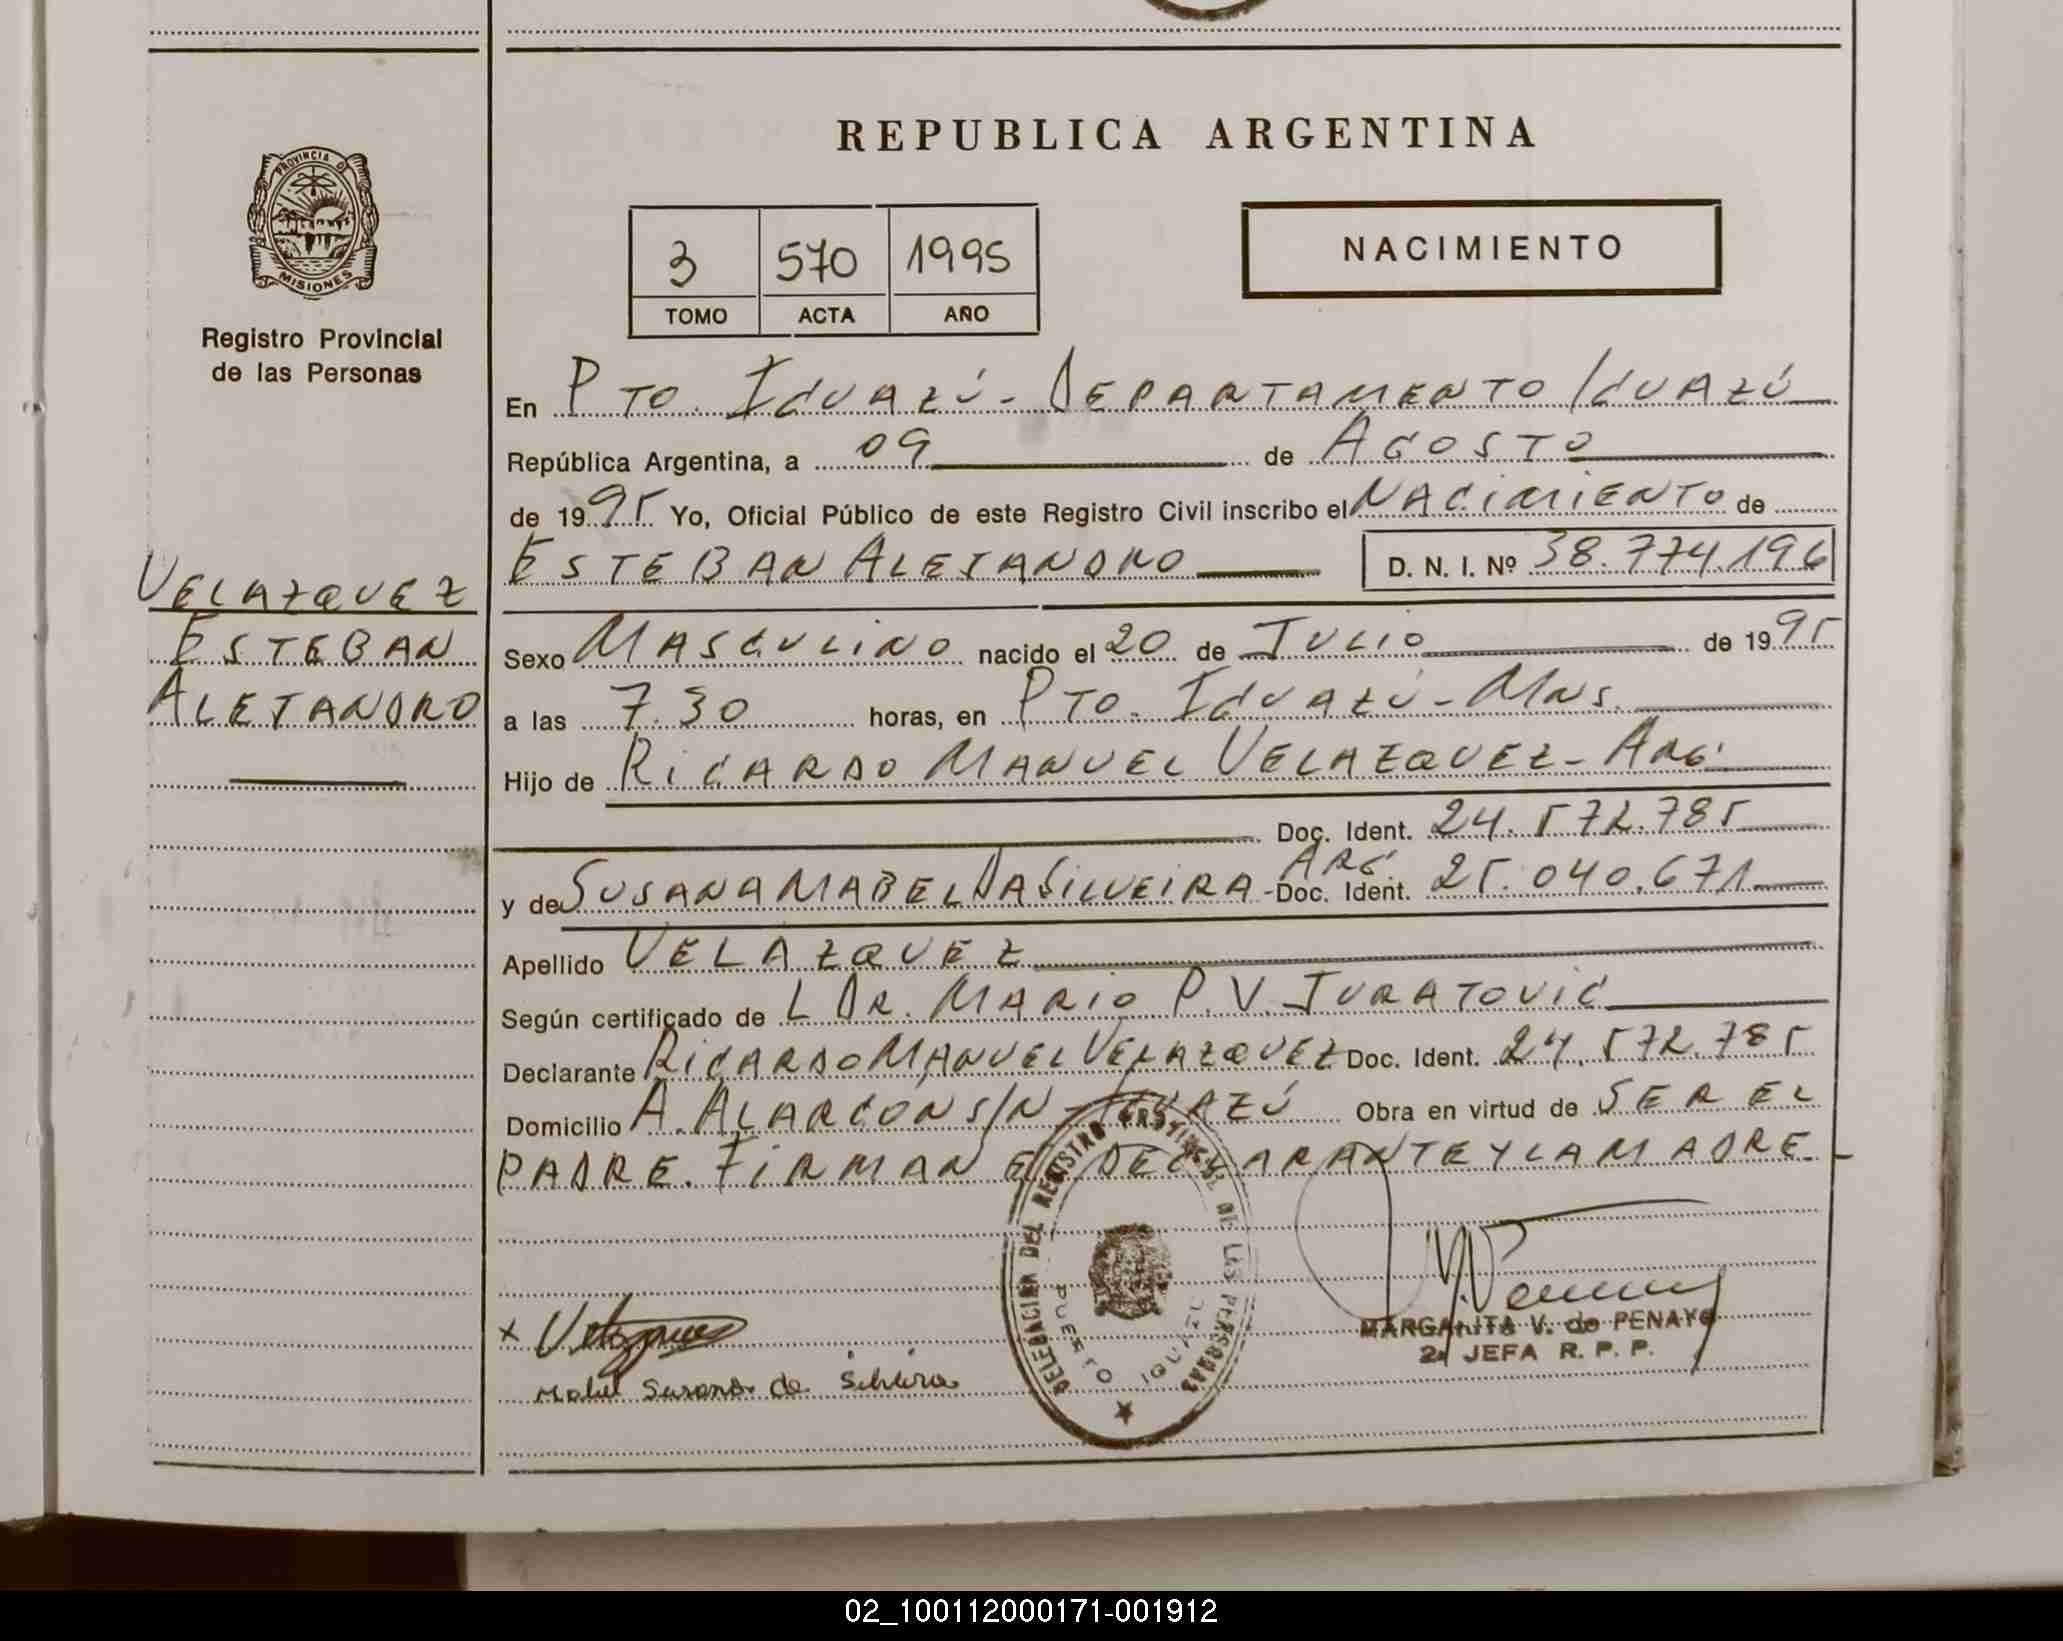 REPUBLICA ARGENTINA
PROVINCIA D
MISIONES
Registro Provincial
de las Personas
3 570 1995
TOMO ACTA AÑO
NACIMIENTO
En PTO. IGUAZÚ - DEPARTAMENTO IGUAZÚ
República Argentina, a 09 de AGOSTO
de 1995 Yo, Oficial Público de este Registro Civil inscribo el NACIMIENTO de
ESTEBAN ALEJANDRO D. N. I. Nº 38.774.196
VELAZQUEZ
ESTEBAN
ALEJANDRO
Sexo MASCULINO nacido el 20 de JULIO de 1995
a las 7.30 horas, en PTO. IGUAZÚ - MNS.
Hijo de RICARDO MANUEL VELAZQUEZ - ARG.
Doc. Ident. 24.572.785
y de SUSANA MABEL DA SILVEIRA - ARG. Doc. Ident. 25.040.671
Apellido VELAZQUEZ
Según certificado de L DR. MARIO P. V. JURATOVIC
Declarante RICARDO MANUEL VELAZQUEZ Doc. Ident. 24.572.785
Domicilio A. ALARCON S/N - IGUAZÚ Obra en virtud de SER EL
PADRE. FIRMAN EL DECLARANTE Y LA MADRE.-
DELEGACION DEL REGISTRO PROVINCIAL DE LAS PERSONAS
PUERTO IGUAZU
x Velazquez
Mabel Susana da Silveira
MARGARITA V. de PENAYO
2a JEFA R. P. P.
02_100112000171-001912